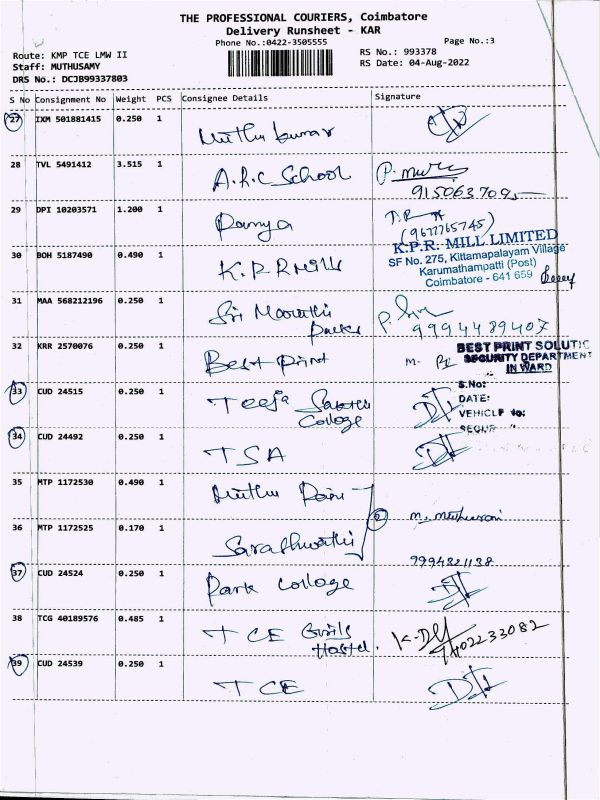 THE PROFESSIONAL COURIERS, Coimbatore
Delivery Runsheet - KAR
Phone No.:0422-3505555
Page No.:3
Route: KMP TCE LMW II
Staff: MUTHUSAMY
DRS No.: DCJB99337803
RS No.: 993378
RS Date: 04-Aug-2022
S No Consignment No Weight PCS Consignee Details Signature
27 IXM 501881415 0.250 1 Muthu kumar
28 TVL 5491412 3.515 1 A.R.C School
29 DPI 10203571 1.200 1 Ramya (9677765745)
K.P.R. MILL LIMITED
SF No. 275, Kittamapalayam Village
Karumathampatti (Post)
Coimbatore - 641 659
30 BOH 5187490 0.490 1 K.P.R Mills
31 MAA 568212196 0.250 1 Sri
9994489407
32 KRR 2570076 0.250 1 Best print
BEST PRINT SOLUTIC
SECURITY DEPARTMENT
IN WARD
S.No:
DATE:
VEHICLE No:
33 CUD 24515 0.250 1 Teeja
College
34 CUD 24492 0.250 1 TSA
35 MTP 1172530 0.490 1 Muthu Rani
36 MTP 1172525 0.170 1 Sarashwathi
9994821138
37 CUD 24524 0.250 1 Park College
38 TCG 40189576 0.485 1 TCE Girls
Hostel.
39 CUD 24539 0.250 1 TCE